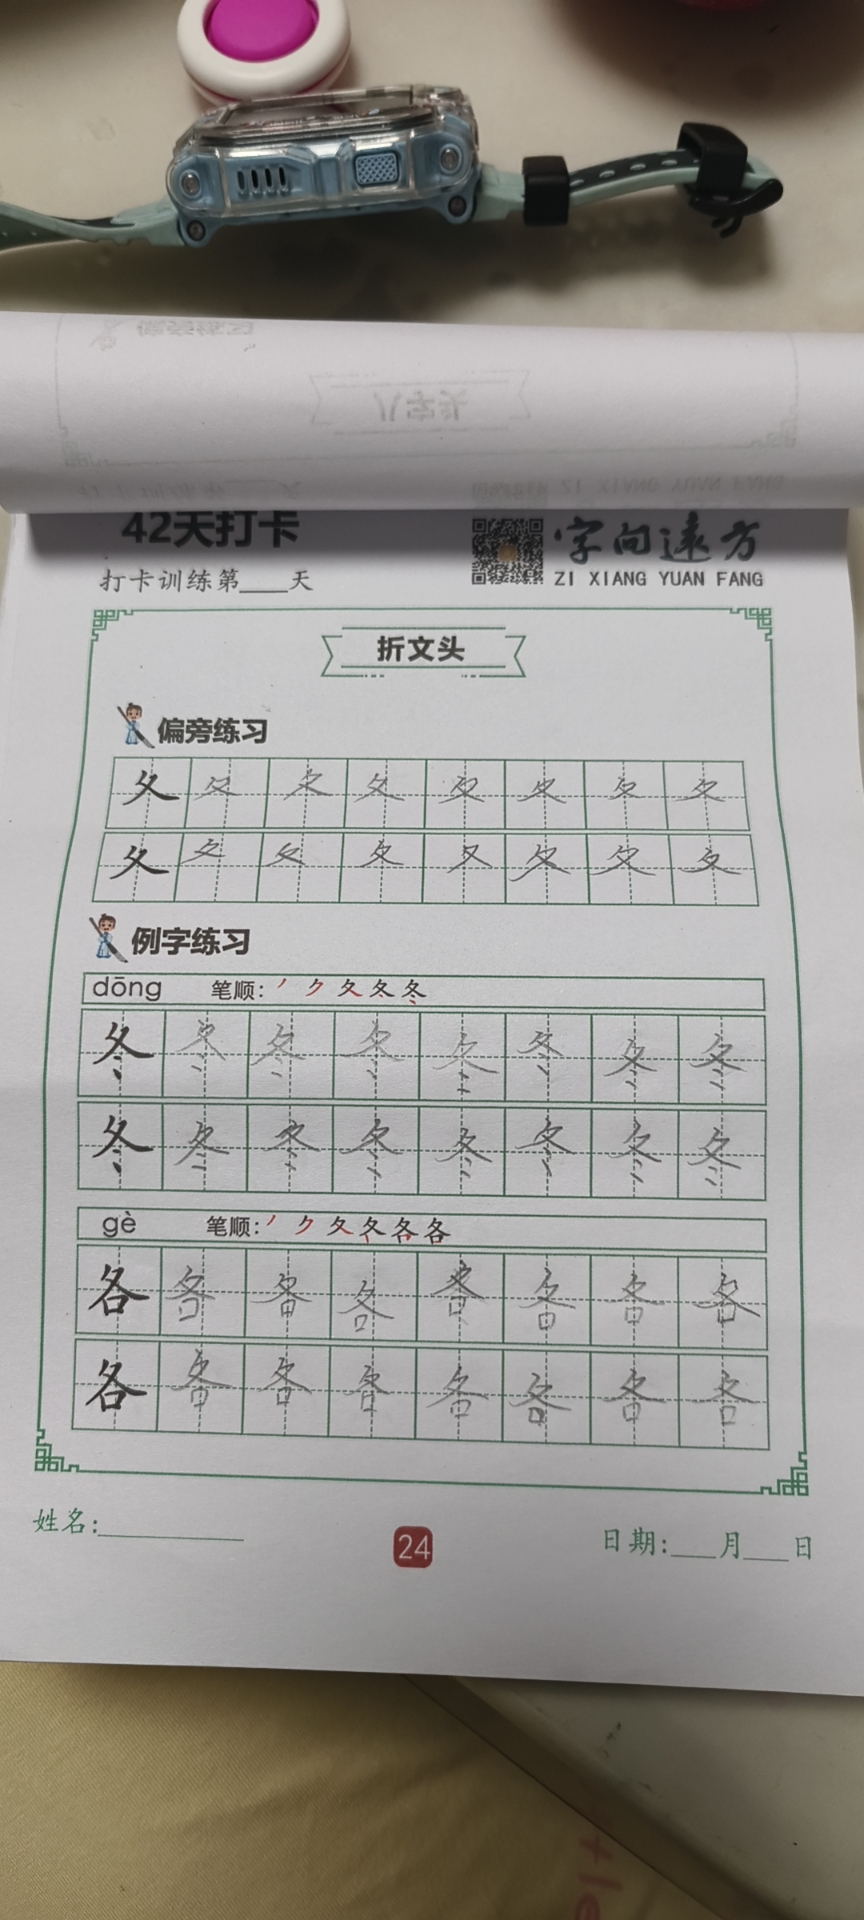 42天打卡
字向远方
打卡训练第___天
ZI XIANG YUAN FANG
折文头
偏旁练习
夂 夂 夂 夂 夂 夂 夂 夂
夂 夂 夂 夂 夂 夂 夂 夂
例字练习
dōng 笔顺:
冬 冬 冬 冬 冬 冬 冬 冬
冬 冬 冬 冬 冬 冬 冬 冬
gè 笔顺:
各 各 各 各 各 各 各 各
各 各 各 各 各 各 各 各
姓名:___________
24
日期:___月___日